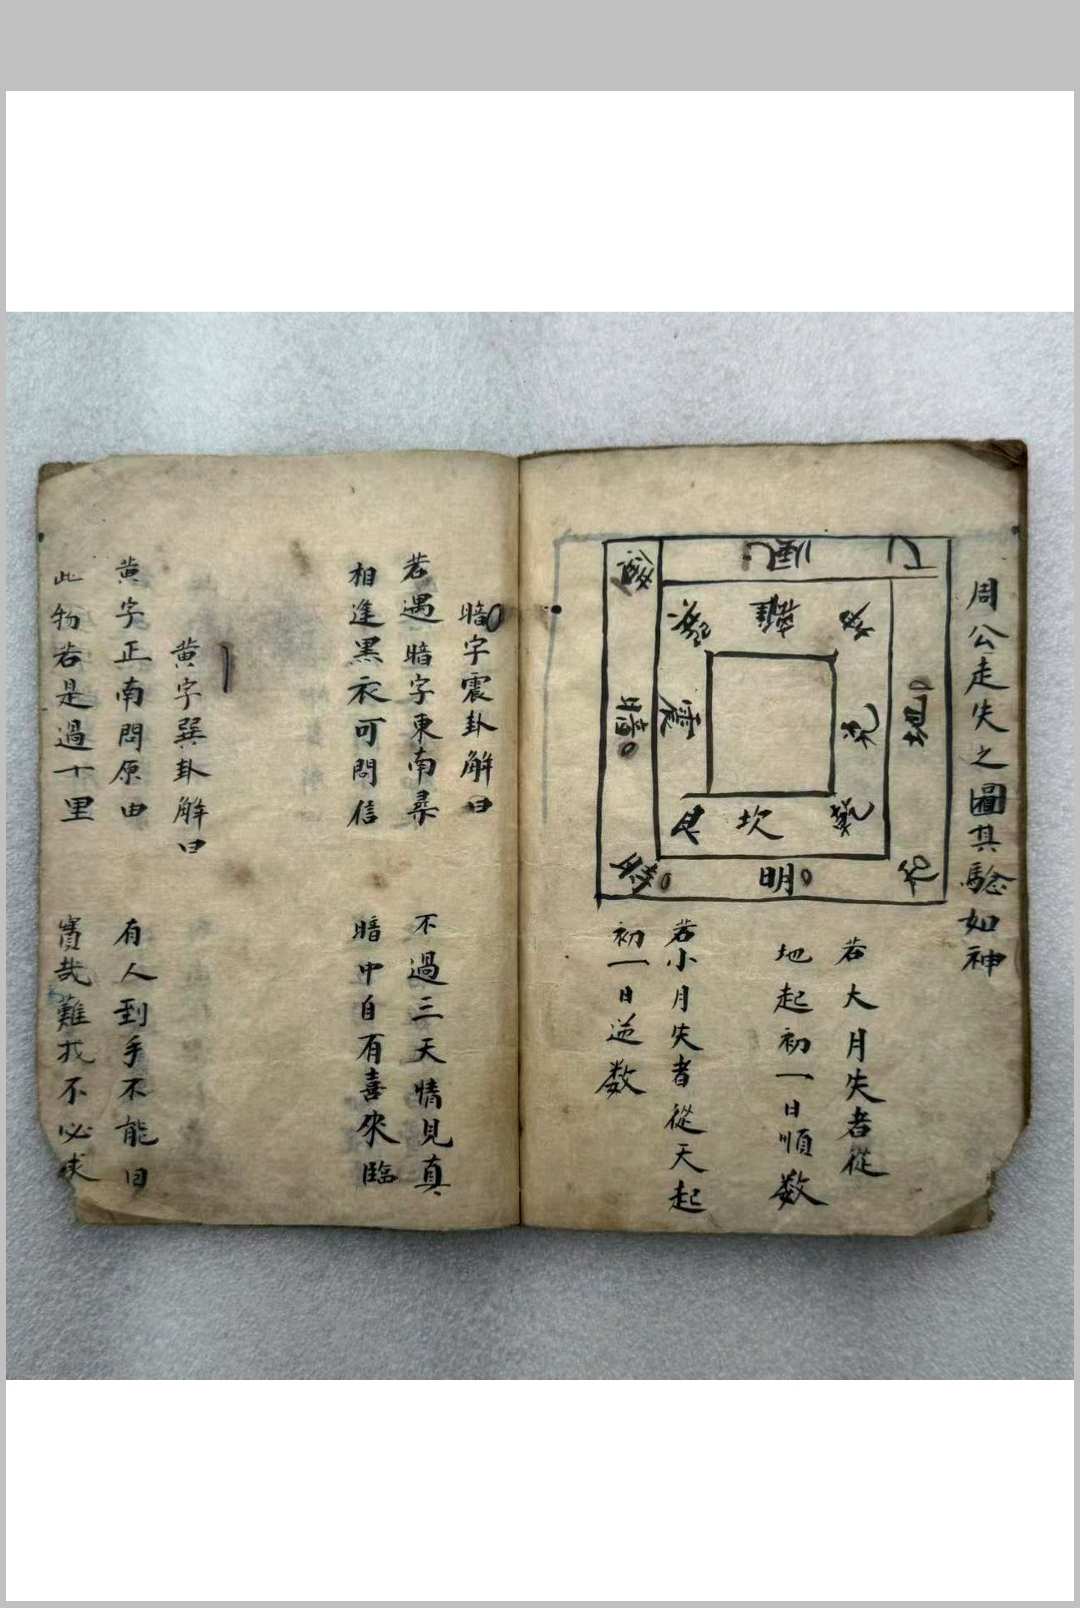 周公走失之圖其騐如神
離
震
坎
艮
兌
乾
暗
明
地
若大月失者從
地起初一日順数
若小月失者從天起
初一日逆数
暗字震卦解曰
若遇暗字東南尋
不過三天情見真
相逢黑衣可問信
暗中自有喜來臨
黄字巽卦解曰
黄字正南問原由
有人到手不能
此物若是過十里
實哉難找不必求